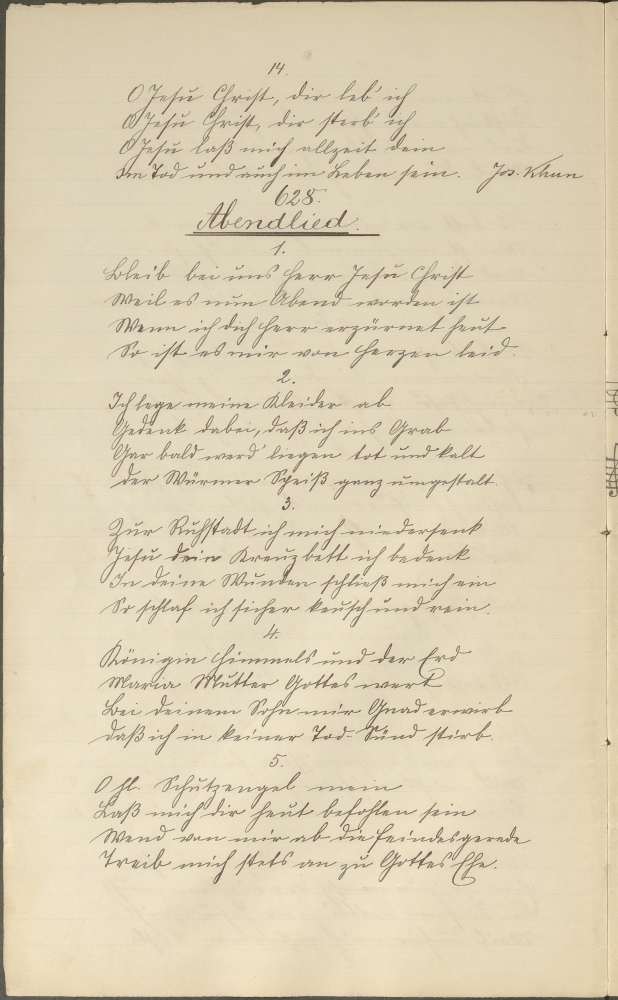 14.
O Jesu Christ, dir leb' ich
O Jesu Christ, dir sterb' ich
O Jesu laß mich allzeit dein
Im Tod und auch im Leben sein. Jos. Khun
628.
Abendlied.
1.
Bleib bei uns Herr Jesu Christ
Weil es nun Abend worden ist
Wenn ich dich Herr erzürnet heut
So ist es mir von Herzen leid.
2.
Ich lege meine Kleider ab
Gedenk dabei, daß ich ins Grab
Gar bald werd' liegen tot und kalt
der Würmer Speiß ganz ungestalt.
3.
Zur Ruhstadt ich mich niedersenk
Jesu dein Kreuzbett ich bedenk
In deine Wunden schließ mich ein
So schlaf ich sicher keusch und rein.
4.
Königin Himmels und der Erd
Maria Mutter Gottes wert
Bei deinem Sohn mir Gnad erwirb
daß ich in keiner Tod-Sünd stirb.
5.
O hl. Schutzengel mein
Laß mich dir heut befohlen sein
Wend von mir ab die Feindes
Treib mich stets an zu Gottes Ehr.